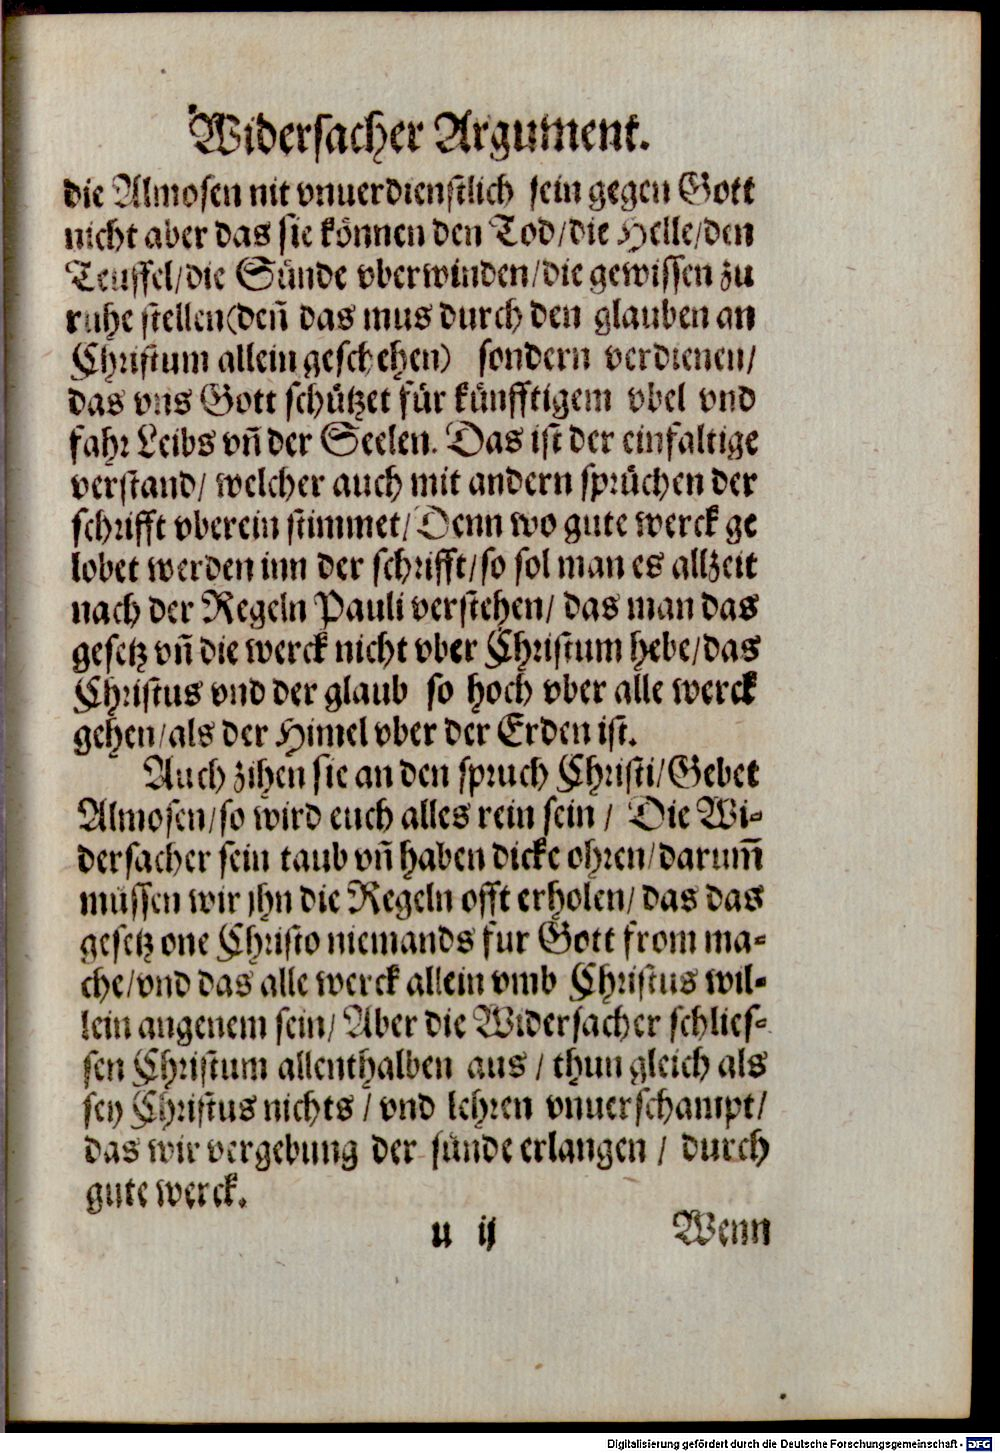 Widersacher Argument.
die Almosen nit vnuerdienstlich sein gegen Gott
nicht aber das sie können den Tod/die Helle/den
Teuffel/die Sünde vberwinden/die gewissen zu
ruhe stellen(deñ das mus durch den glauben an
Christum allein geschehen) sondern verdienen/
das vns Gott schützet für künfftigem vbel vnd
fahr Leibs vñ der Seelen. Das ist der einfaltige
verstand/ welcher auch mit andern sprüchen der
schrifft vberein stimmet/Denn wo gute werck ge
lobet werden inn der schrifft/so sol man es allzeit
nach der Regeln Pauli verstehen/ das man das
gesetz vñ die werck nicht vber Christum hebe/das
Christus vnd der glaub so hoch vber alle werck
gehen/als der Himel vber der Erden ist.
Auch zihen sie an den spruch Christi/Gebet
Almosen/so wird euch alles rein sein / Die Wi-
dersacher sein taub vñ haben dicke ohren/darum̄
müssen wir jhn die Regeln offt erholen/ das das
gesetz one Christo niemands fur Gott from ma-
che/vnd das alle werck allein vmb Christus wil-
lein angenem sein/ Aber die Widersacher schlies-
sen Christum allenthalben aus / thun gleich als
sey Christus nichts / vnd lehren vnuerschampt/
das wir vergebung der sünde erlangen / durch
gute werck.
u ij Wenn
Digitalisierung gefördert durch die Deutsche Forschungsgemeinschaft - DFG